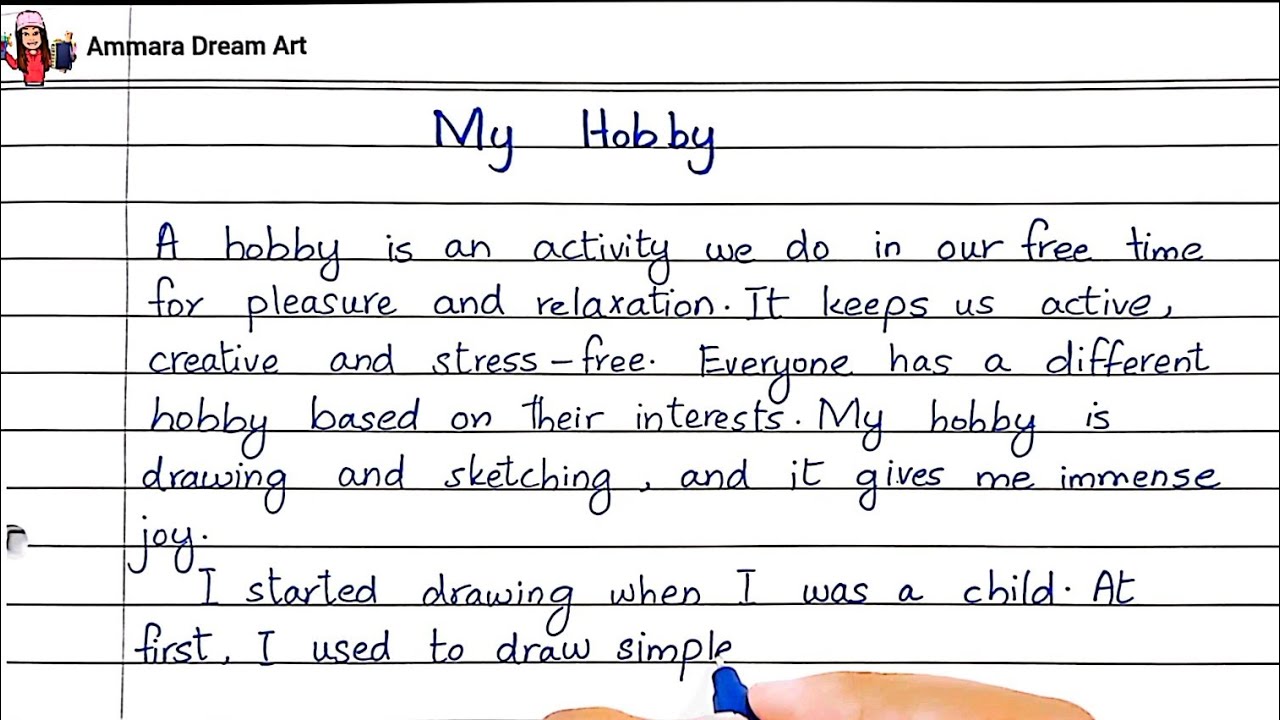 Ammara Dream Art
My Hobby
A hobby is an activity we do in our free time
for pleasure and relaxation. It keeps us active,
creative and stress-free. Everyone has a different
hobby based on their interests. My hobby is
drawing and sketching, and it gives me immense
joy.
I started drawing when I was a child. At
first, I used to draw simple